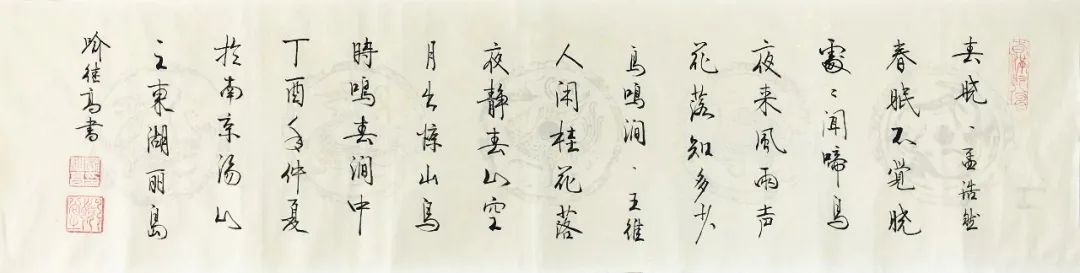 春晓、孟浩然
春眠不觉晓
處〻闻啼鸟
夜来风雨声
花落知多少
鸟鸣涧、王维
人闲桂花落
夜静春山空
月出惊山鸟
時鸣春涧中
丁酉年仲夏
於南京汤山
之東湖丽岛
徐高书